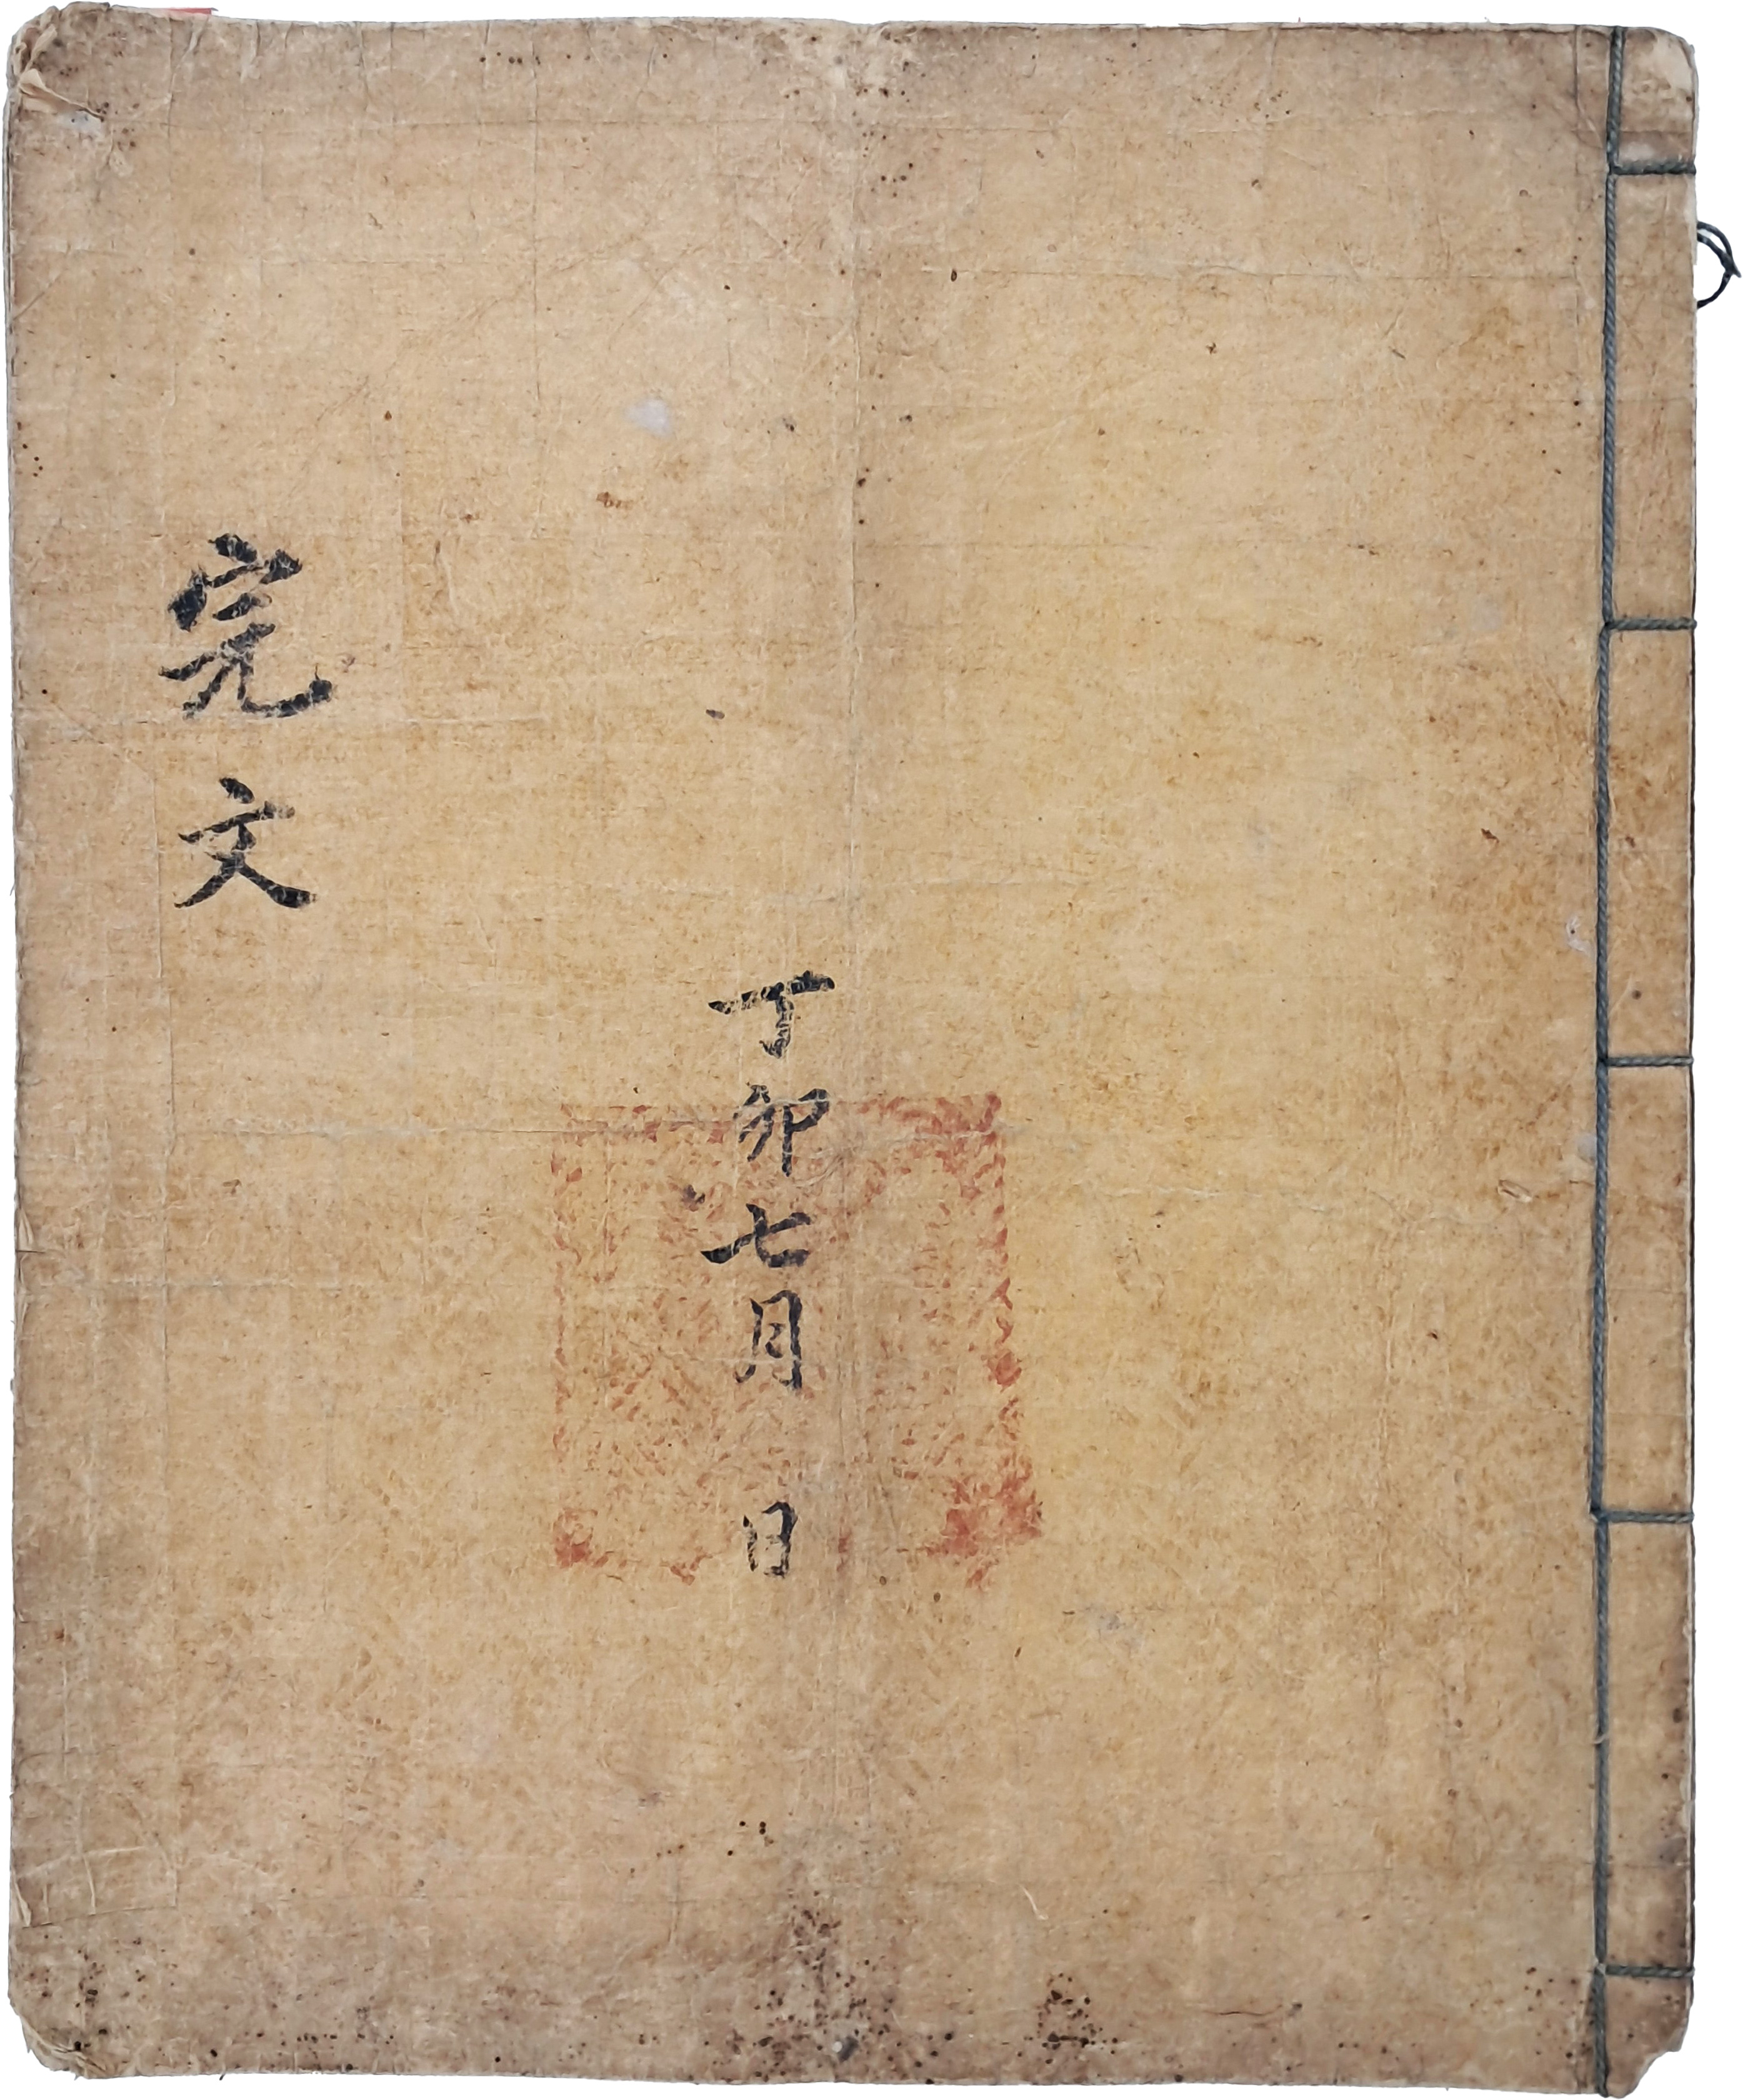 完文
丁卯七月 日